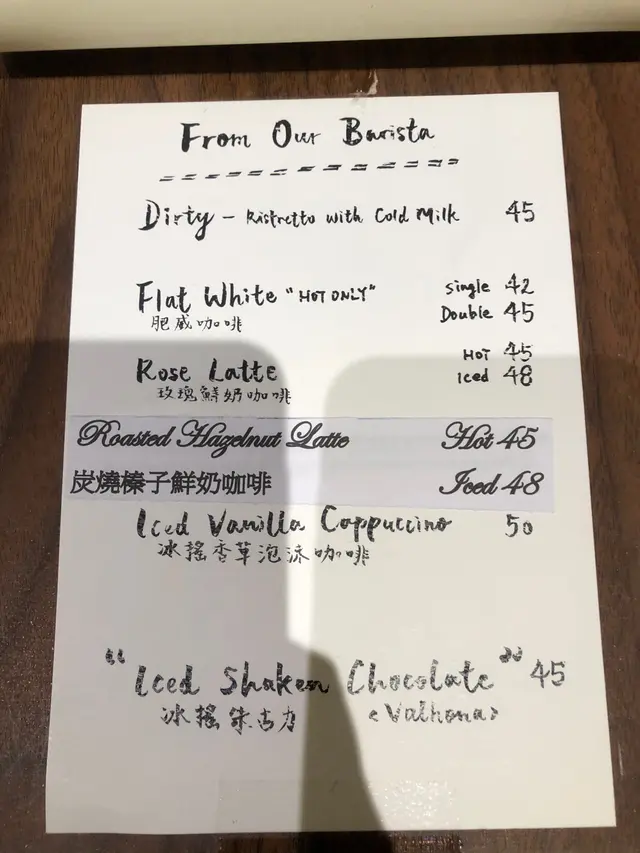 From Our Barista
Dirty - Ristretto with Cold Milk 45
Flat White "HOT ONLY" Single 42
肥威咖啡 Double 45
Rose Latte Hot 45
玫瑰鮮奶咖啡 Iced 48
Roasted Hazelnut Latte Hot 45
炭燒榛子鮮奶咖啡 Iced 48
Iced Vanilla Cappuccino 50
冰搖香草泡沫咖啡
"Iced Shaken Chocolate" 45
冰搖朱古力 <Valhona>